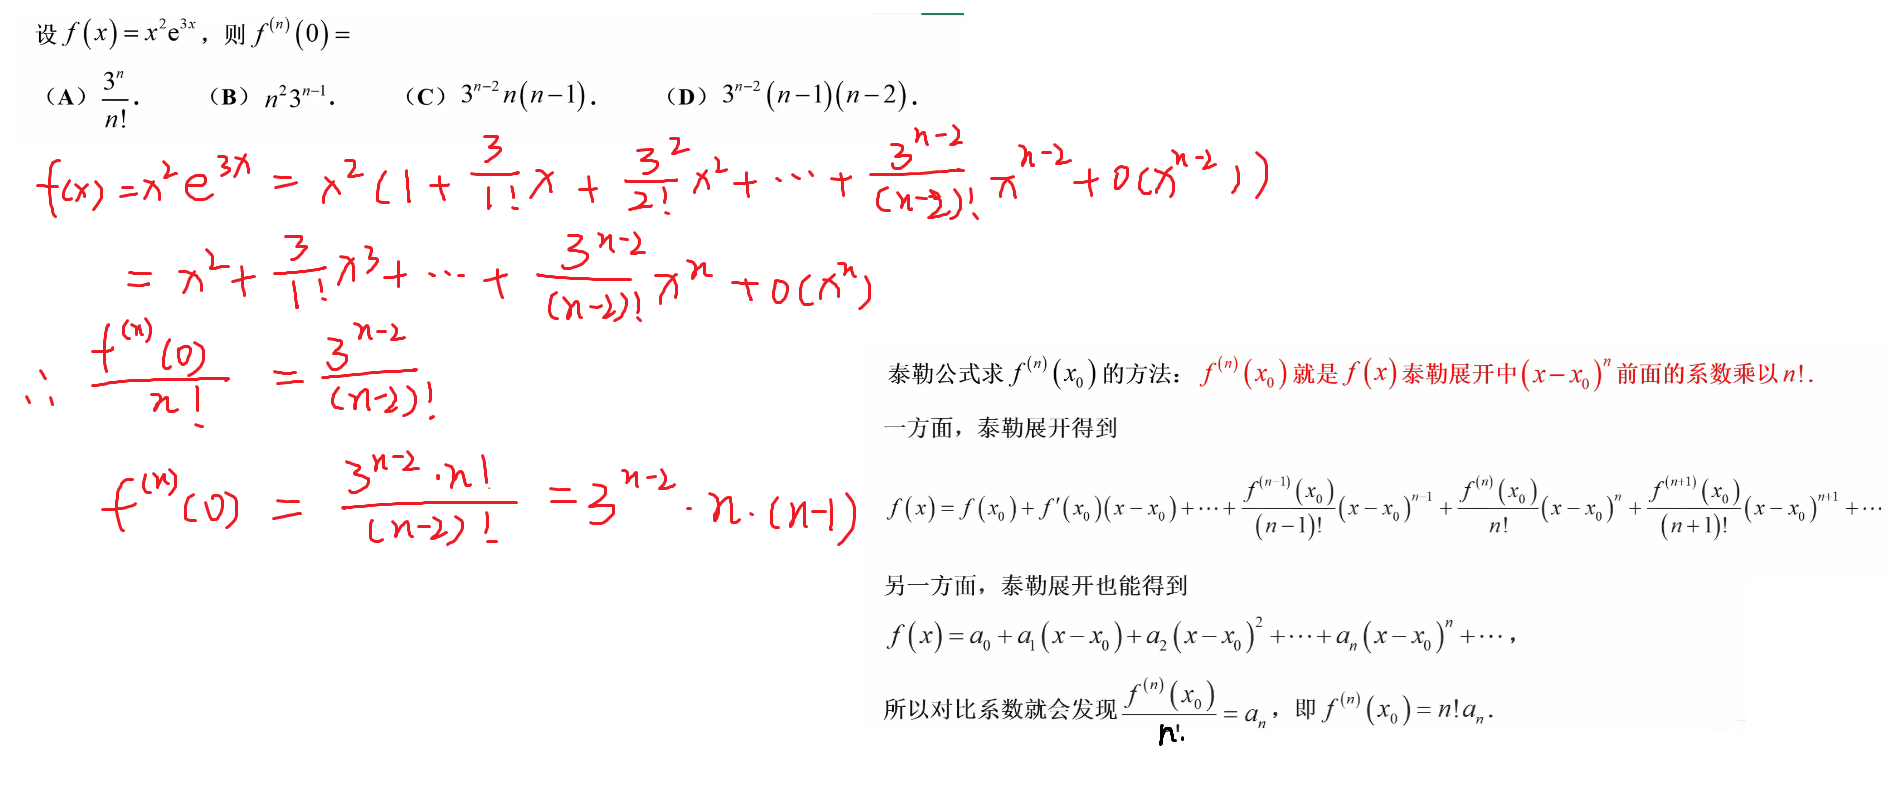 设 f(x)=x²e^{3x}，则 f^{(n)}(0)=
（A）3^n/n!．  （B）n²3^{n-1}．  （C）3^{n-2}n(n-1)．  （D）3^{n-2}(n-1)(n-2)．
f(x)=x²e^{3x} = x²(1+3/1! x+3²/2! x²+⋯+3^{n-2}/(n-2)! x^{n-2}+o(x^{n-2}))
= x²+3/1! x³+⋯+3^{n-2}/(n-2)! x^n+o(x^n)
∴ f^{(n)}(0)/n! = 3^{n-2}/(n-2)!
f^{(n)}(0) = 3^{n-2}·n!/(n-2)! = 3^{n-2}·n·(n-1)
泰勒公式求 f^{(n)}(x₀) 的方法：f^{(n)}(x₀) 就是 f(x) 泰勒展开中 (x-x₀)^n 前面的系数乘以 n!．
一方面，泰勒展开得到
f(x)=f(x₀)+f′(x₀)(x-x₀)+⋯+f^{(n-1)}(x₀)/(n-1)! (x-x₀)^{n-1}+f^{(n)}(x₀)/n! (x-x₀)^n+f^{(n+1)}(x₀)/(n+1)! (x-x₀)^{n+1}+⋯
另一方面，泰勒展开也能得到
f(x)=a₀+a₁(x-x₀)+a₂(x-x₀)²+⋯+a_n(x-x₀)^n+⋯，
所以对比系数就会发现 f^{(n)}(x₀)/n! = a_n，即 f^{(n)}(x₀)=n!a_n．